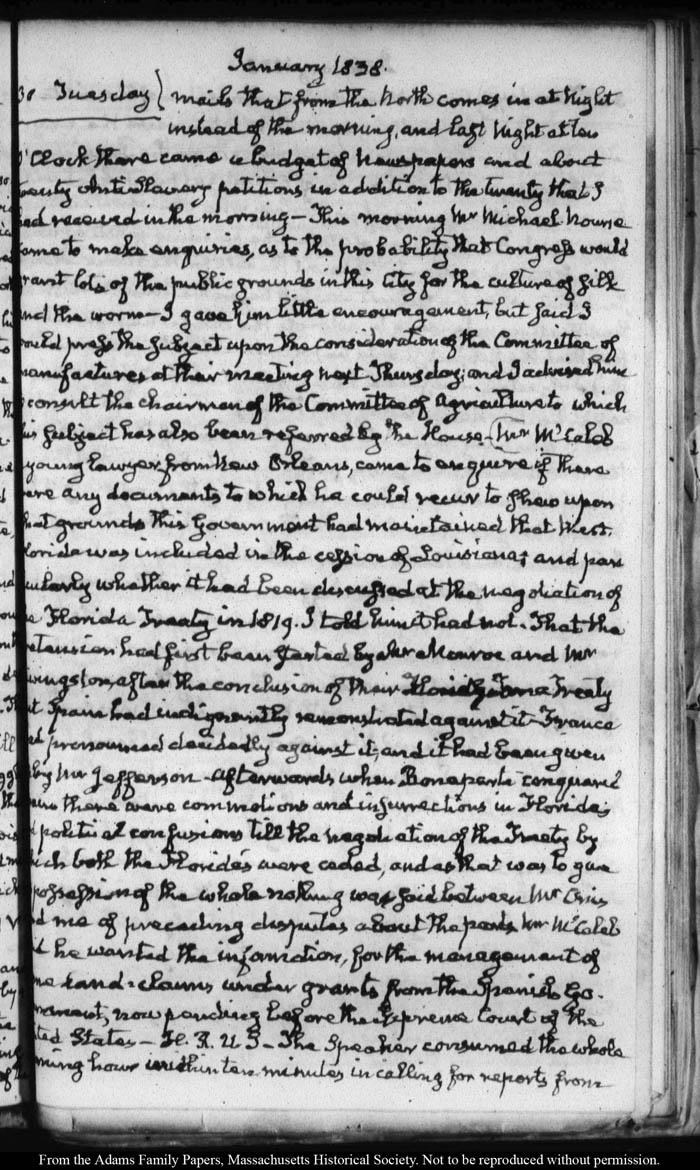 January 1838.
30 Tuesday } mails that from the North comes in at Night
instead of the morning, and last Night at ten
O'Clock there came a budget of Newspapers and about
twenty Antislavery petitions in addition to the twenty that I
had received in the morning — This morning Mr Michael Nourse
came to make enquiries, as to the probability that Congress would
grant lots of the public grounds in this City for the culture of silk
and the worm — I gave him little encouragement, but said I
would press the subject upon the consideration of the Committee of
manufactures at their meeting next Thursday; and I advised him
consult the chairman of the Committee of Agriculture to which
his subject has also been referred by the House — Mr McCaleb
young lawyer from New Orleans, came to enquire if there
were any documents to which he could recur to shew upon
what grounds this Government had maintained that West.
Florida was included in the cession of Louisiana; and par
ticularly whether it had been discussed at the negotiation of
the Florida Treaty in 1819. I told him it had not. That the
pretension had first been started by Mr Monroe and Mr
Livingston, after the conclusion of their Treaty
That Spain had indignantly remonstrated against it — France
had pronounced decidedly against it, and it had been given
by Mr Jefferson — Afterwards when Bonaparte conquered
there were commotions and insurrections in Florida;
political confusions till the negotiation of the Treaty by
which both the Florida's were ceded, and as that was to give
possession of the whole nothing was said between Mr Onis
and me of preceding disputes about the parts. Mr McCaleb
he wanted the information, for the management of
some land-claims under grants from the Spanish Go-
vernment, now pending before the Supreme Court of the
United States — H. R. U S — The Speaker consumed the whole
morning hour within ten minutes in calling for reports from
From the Adams Family Papers, Massachusetts Historical Society. Not to be reproduced without permission.